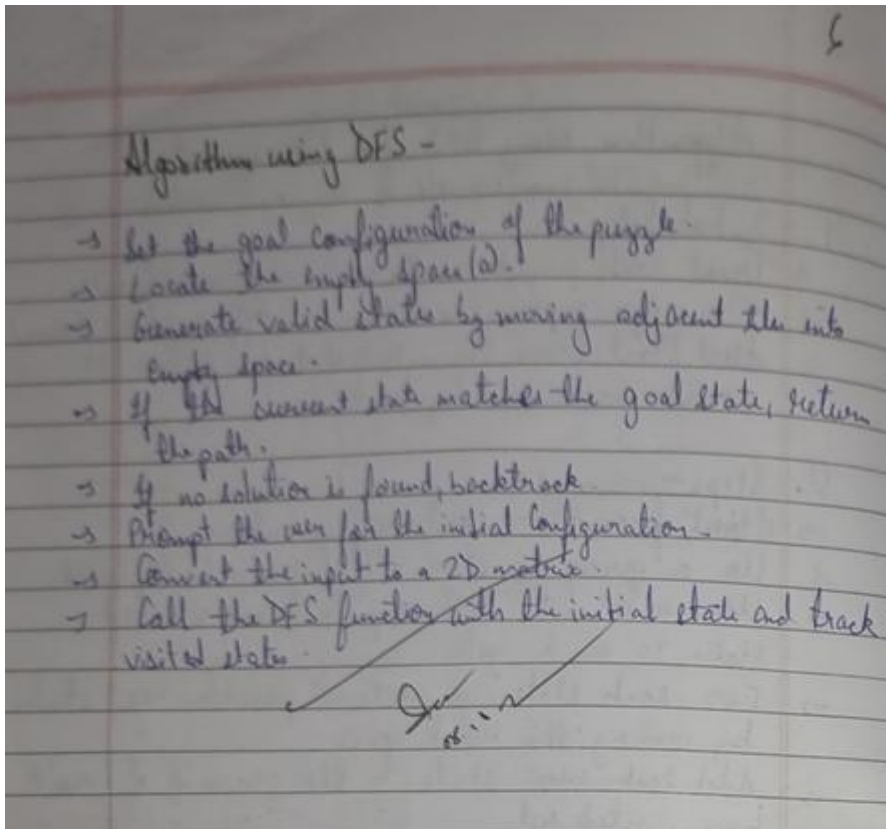 6
Algorithm using DFS -
→ Set the goal configuration of the puzzle.
→ Locate the empty space (0).
→ Generate valid states by moving adjacent tiles into
empty space.
→ If the current state matches the goal state, return
the path.
→ If no solution is found, backtrack
→ Prompt the user for the initial configuration.
→ Convert the input to a 2D matrix.
→ Call the DFS function with the initial state and track
visited states.